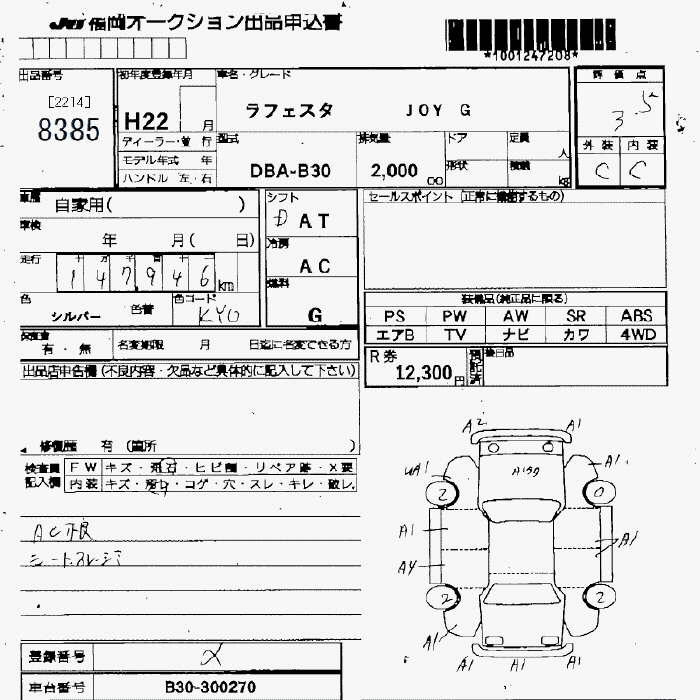 JU 福岡オークション出品申込書
*1001247208*
出品番号 初年度登録年月 車名・グレード 評価点
[2214]
8385
H22 月
ラフェスタ JOY G
3 5
ディーラー・並行
モデル年式 年
ハンドル 左・右
型式
DBA-B30
排気量
2,000 cc
ドア 定員 人
形状 積載 kg
外装 内装
C C
車歴 自家用( )
車検 年 月( 日)
走行 十 万 千 百 十 一
147946 km
色 シルバー 色替 色コード KY0
シフト D AT
冷房 AC
燃料 G
セールスポイント (正常に機能するもの)
装備品(純正品に限る)
PS PW AW SR ABS
エアB TV ナビ カワ 4WD
有・無 名変期限 月 日迄に名変できる方
R券 12,300円 預託済 後日品
出品店申告欄(不良内容・欠品など具体的に記入して下さい)
修復歴 有 (箇所 )
検査員記入欄
FW キズ・飛石・ヒビ割・リペア跡・X要
内装 キズ・汚れ・コゲ・穴・スレ・キレ・破レ
AC不良
A2 A1
A1
2 0
A1
A4
2 2
A1 A1
A1 A1 A1
登録番号 X
車台番号 B30-300270